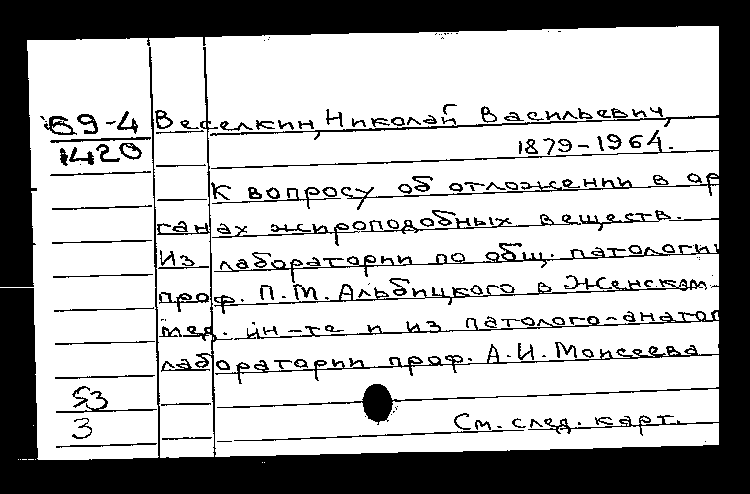 69-4
1420
Веселкин, Николай Васильевич,
1879-1964.
К вопросу об отложении в ор
ганах жироподобных веществ.
Из лаборатории по общ. патологии
проф. П.М. Альбицкого в Женском
мед. ин-те и из патолого-анатом
лаборатории проф. А.И. Моисеева
53
3
См. след. карт.